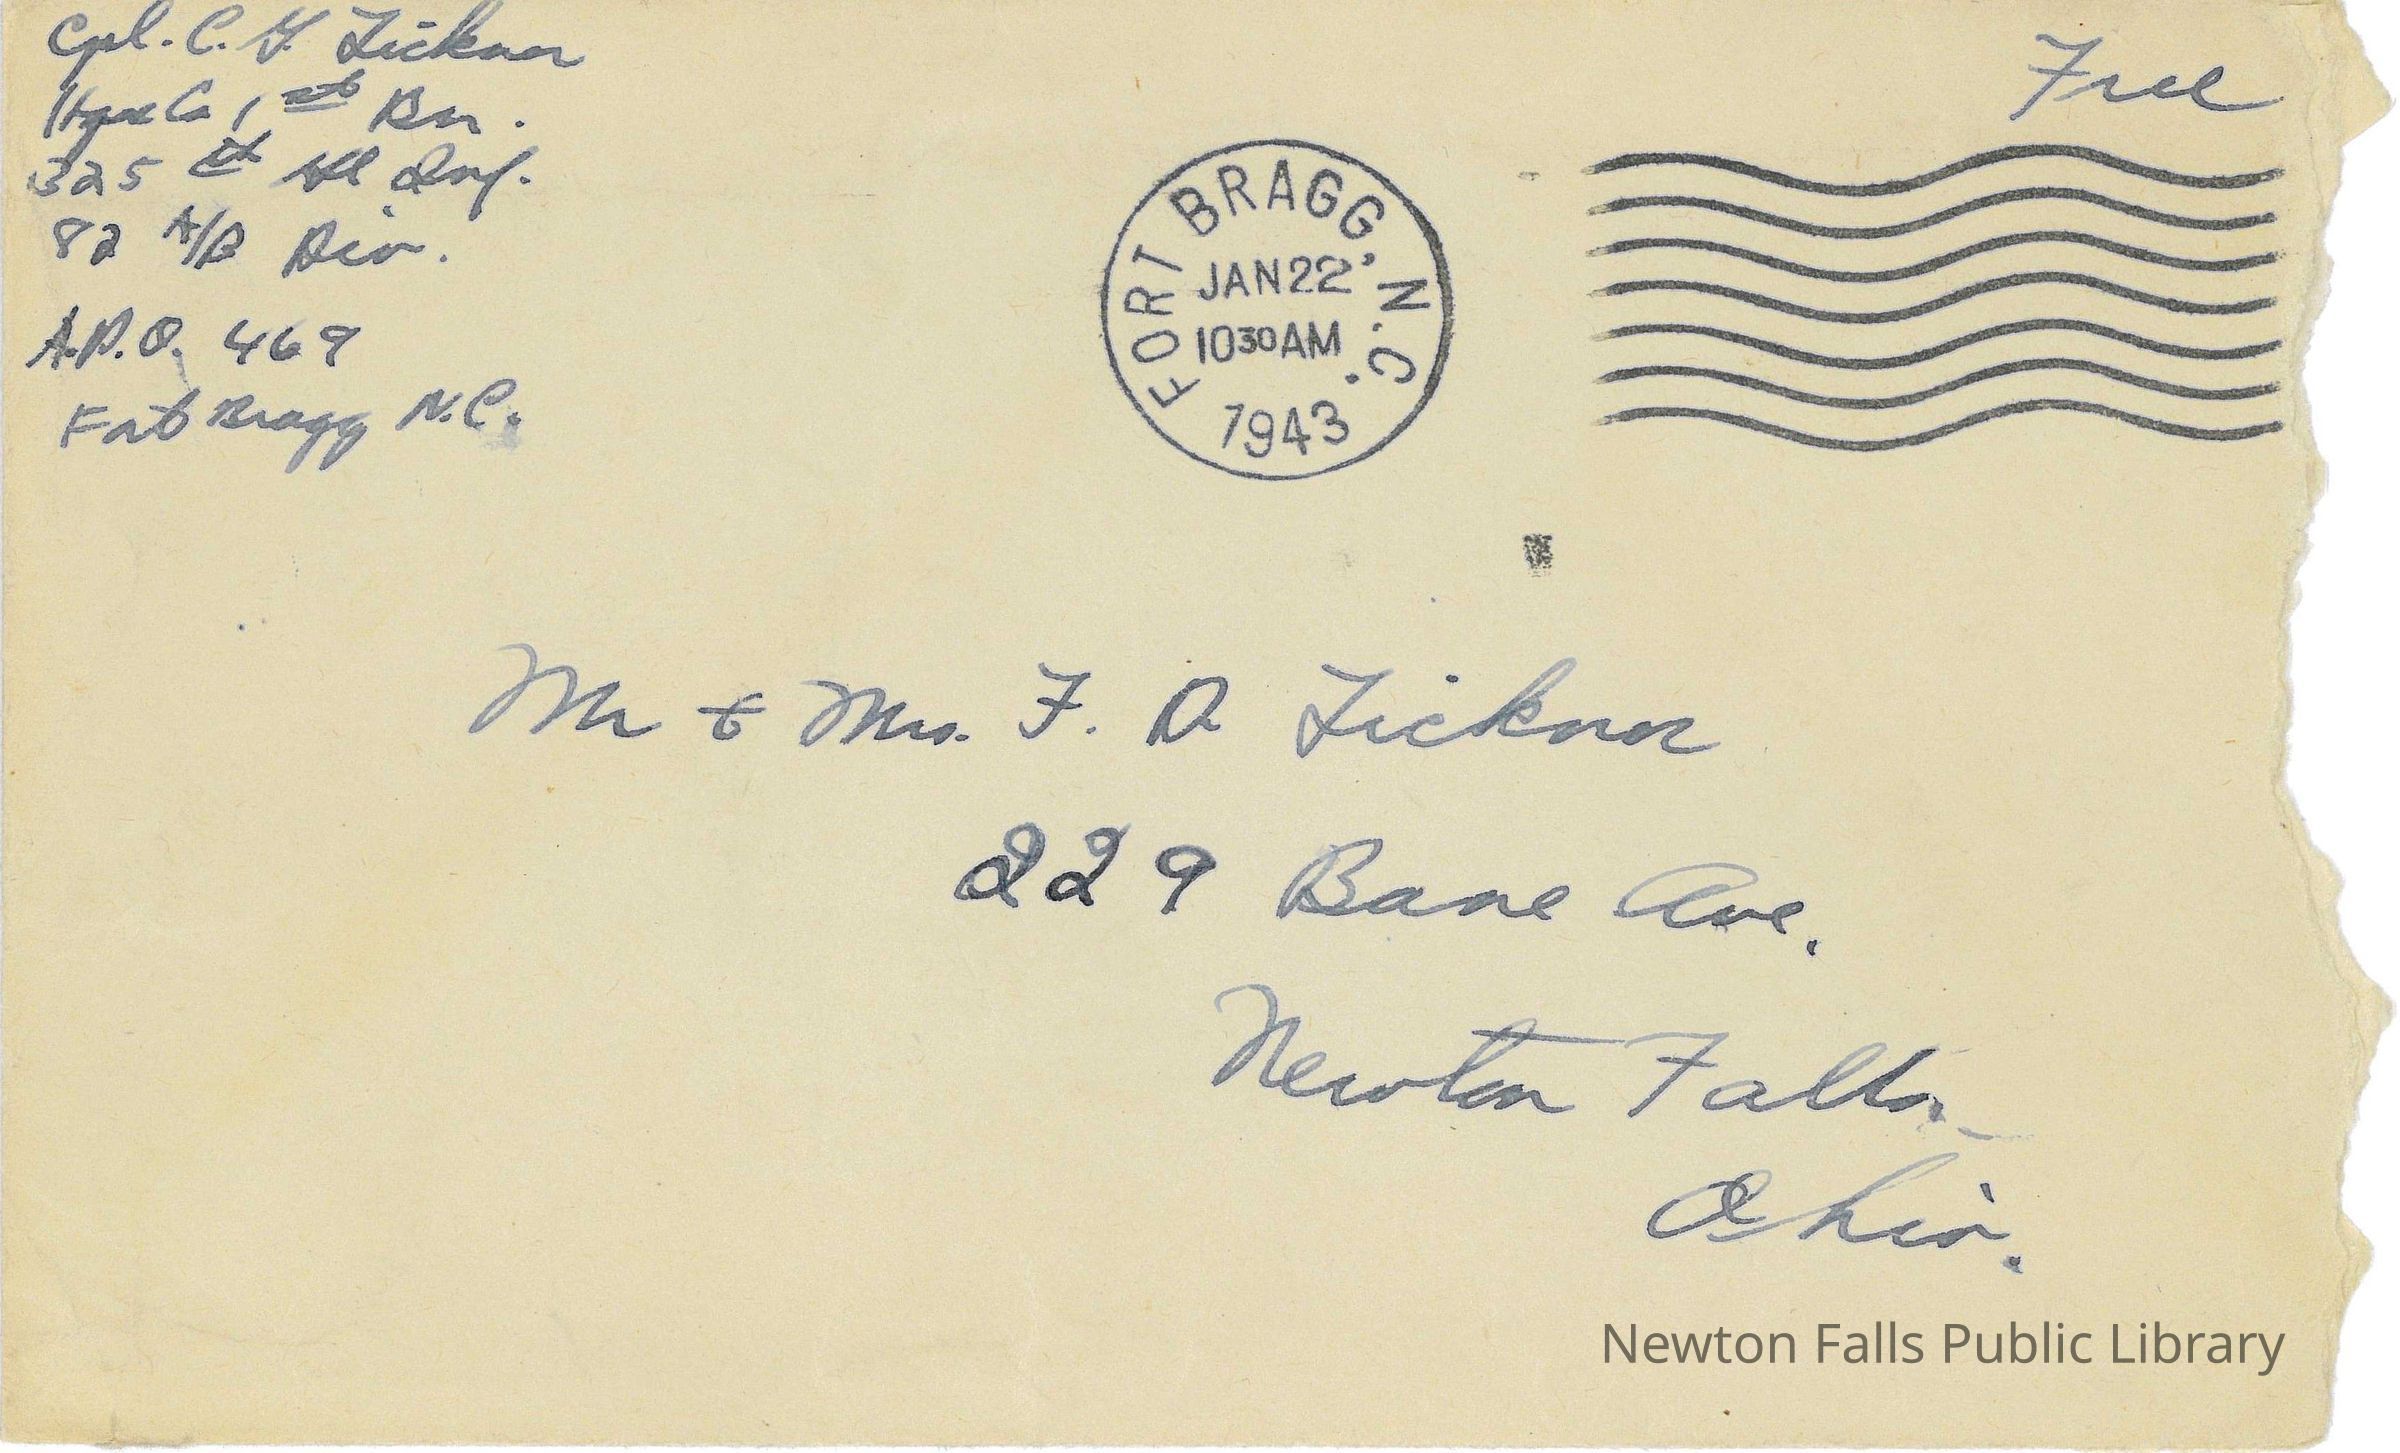 Cpl. C. G. Ticknor
Hqrs Co 1st Bn.
325th Gli Inf.
82 A/B Div.
A.P.O. 469
Fort Bragg N.C.
Free
FORT BRAGG, N.C.
JAN 22
1030 AM
1943
Mr & Mrs. F. D Ticknor
229 Bane Ave.
Newton Falls.
Ohio.
Newton Falls Public Library